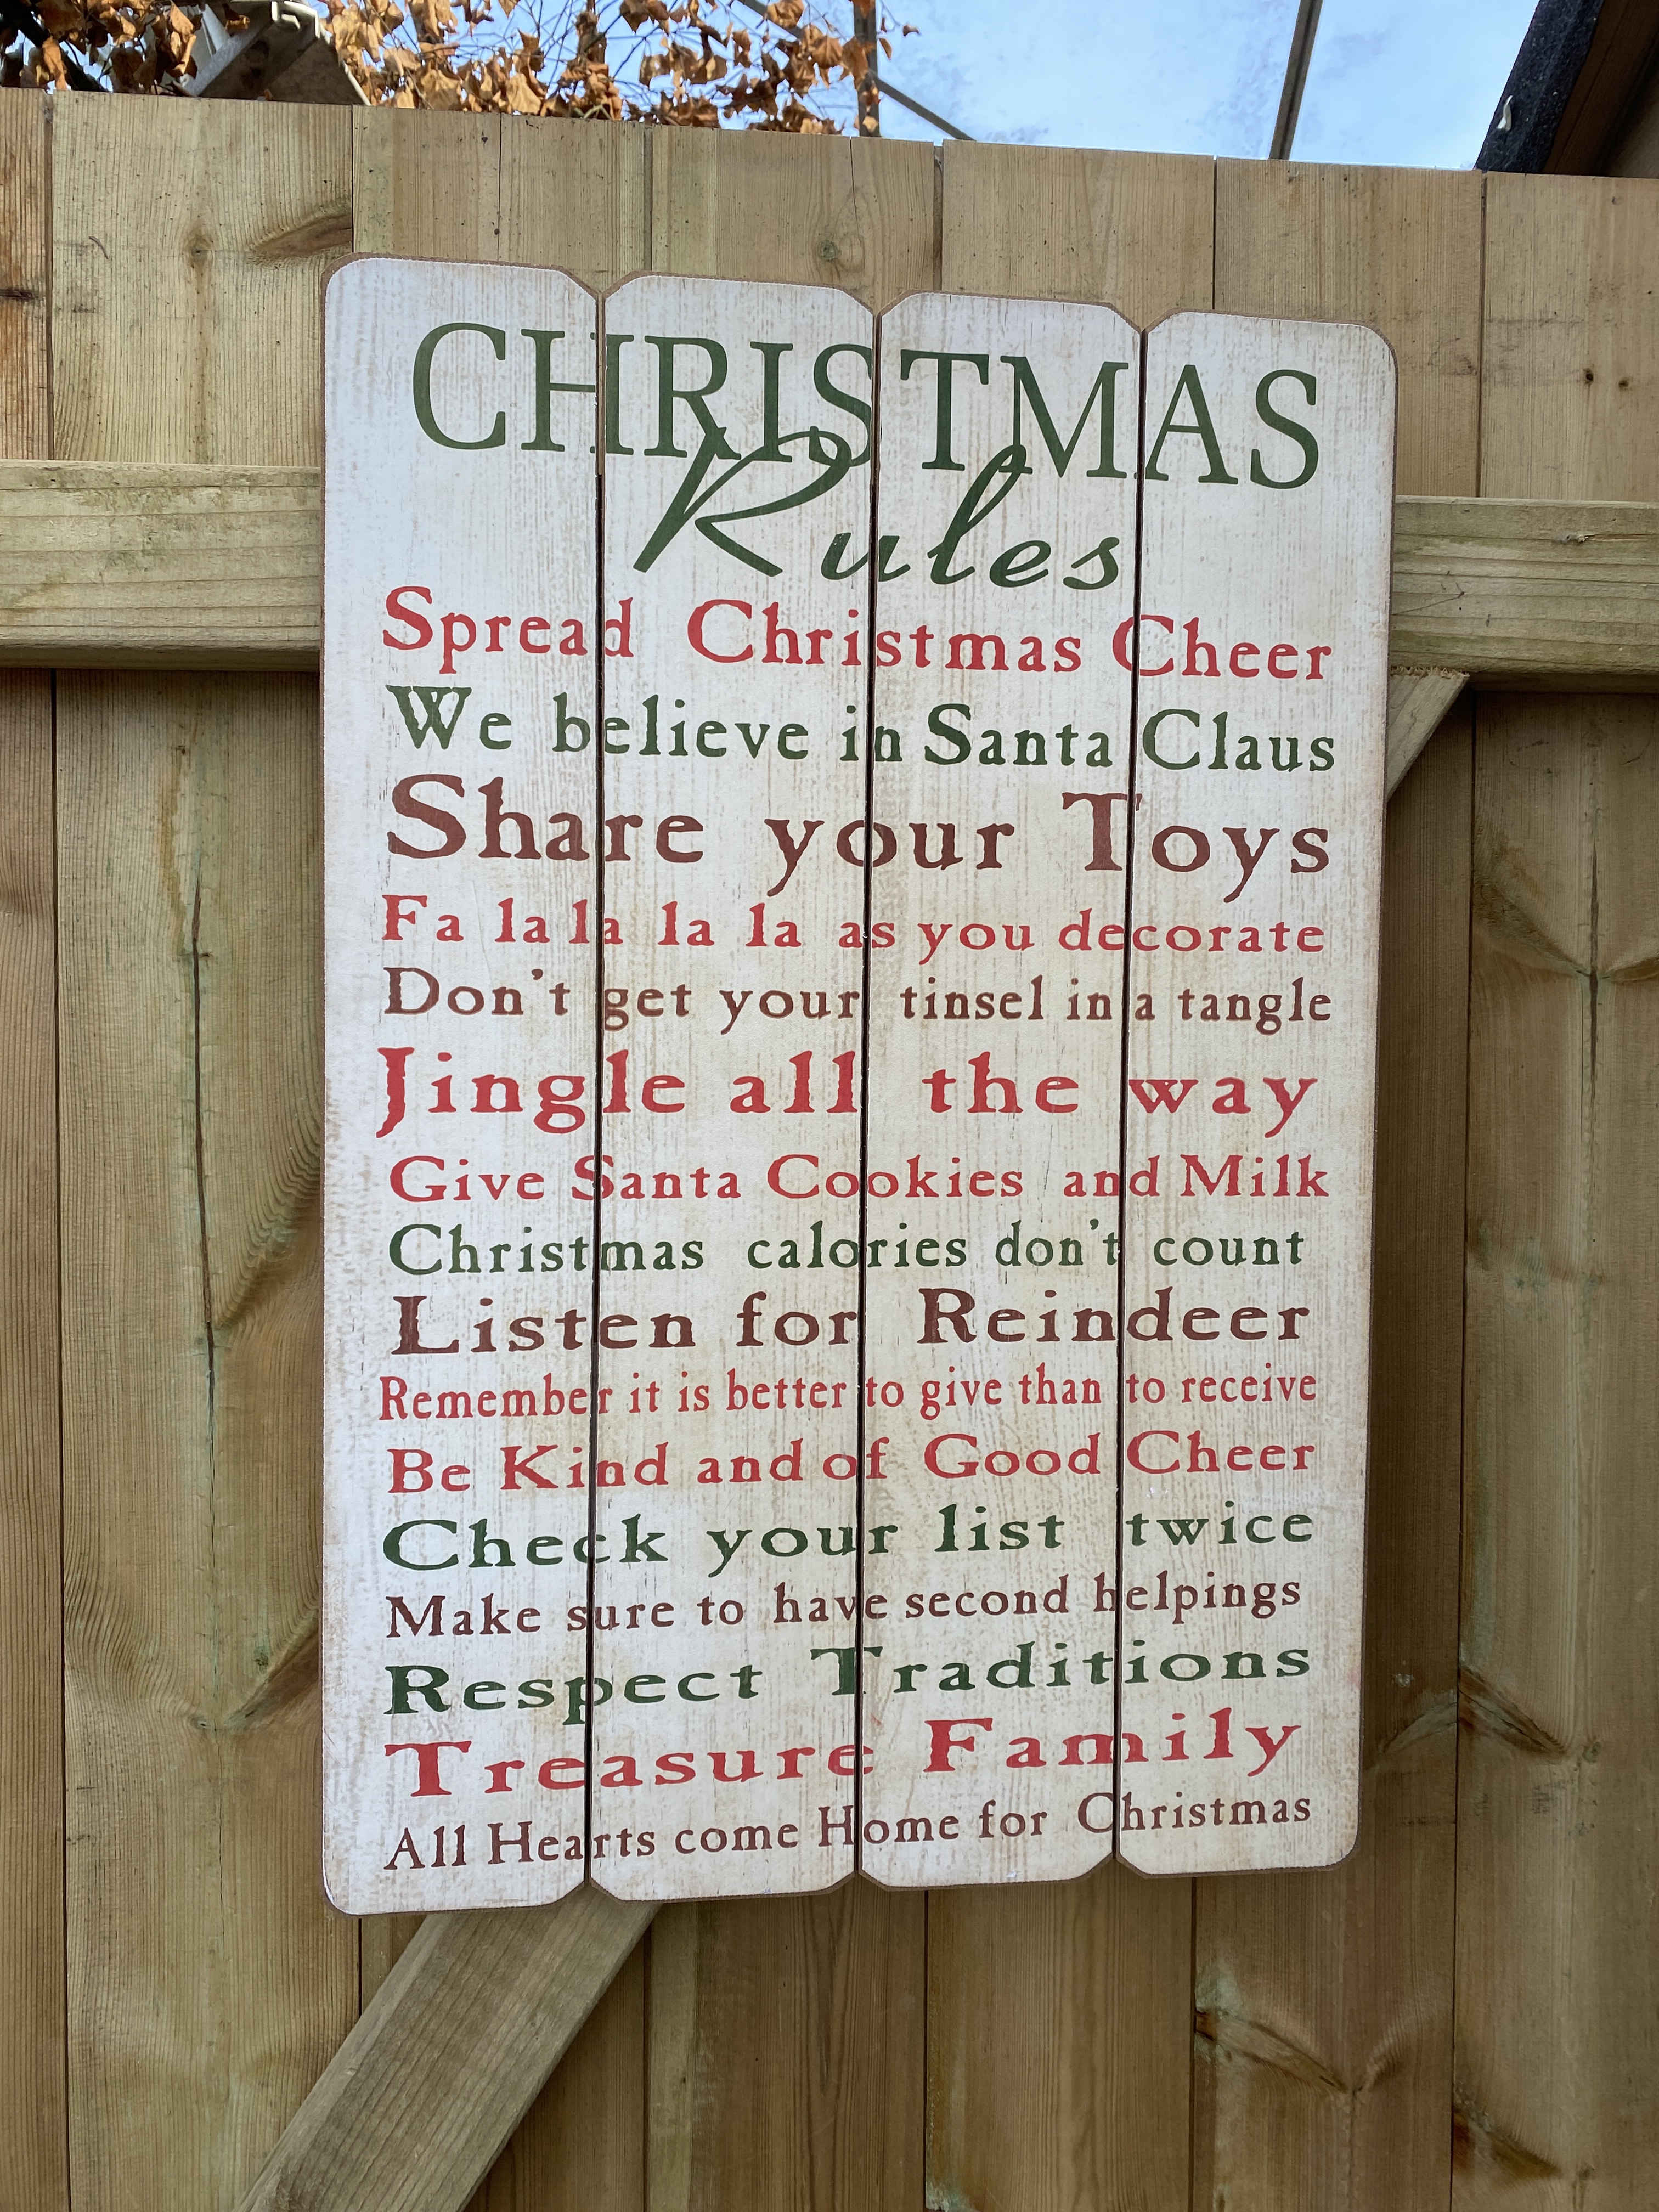 CHRISTMAS
Rules
Spread Christmas Cheer
We believe in Santa Claus
Share your Toys
Fa la la la la as you decorate
Don't get your tinsel in a tangle
Jingle all the way
Give Santa Cookies and Milk
Christmas calories don't count
Listen for Reindeer
Remember it is better to give than to receive
Be Kind and of Good Cheer
Check your list twice
Make sure to have second helpings
Respect Traditions
Treasure Family
All Hearts come Home for Christmas